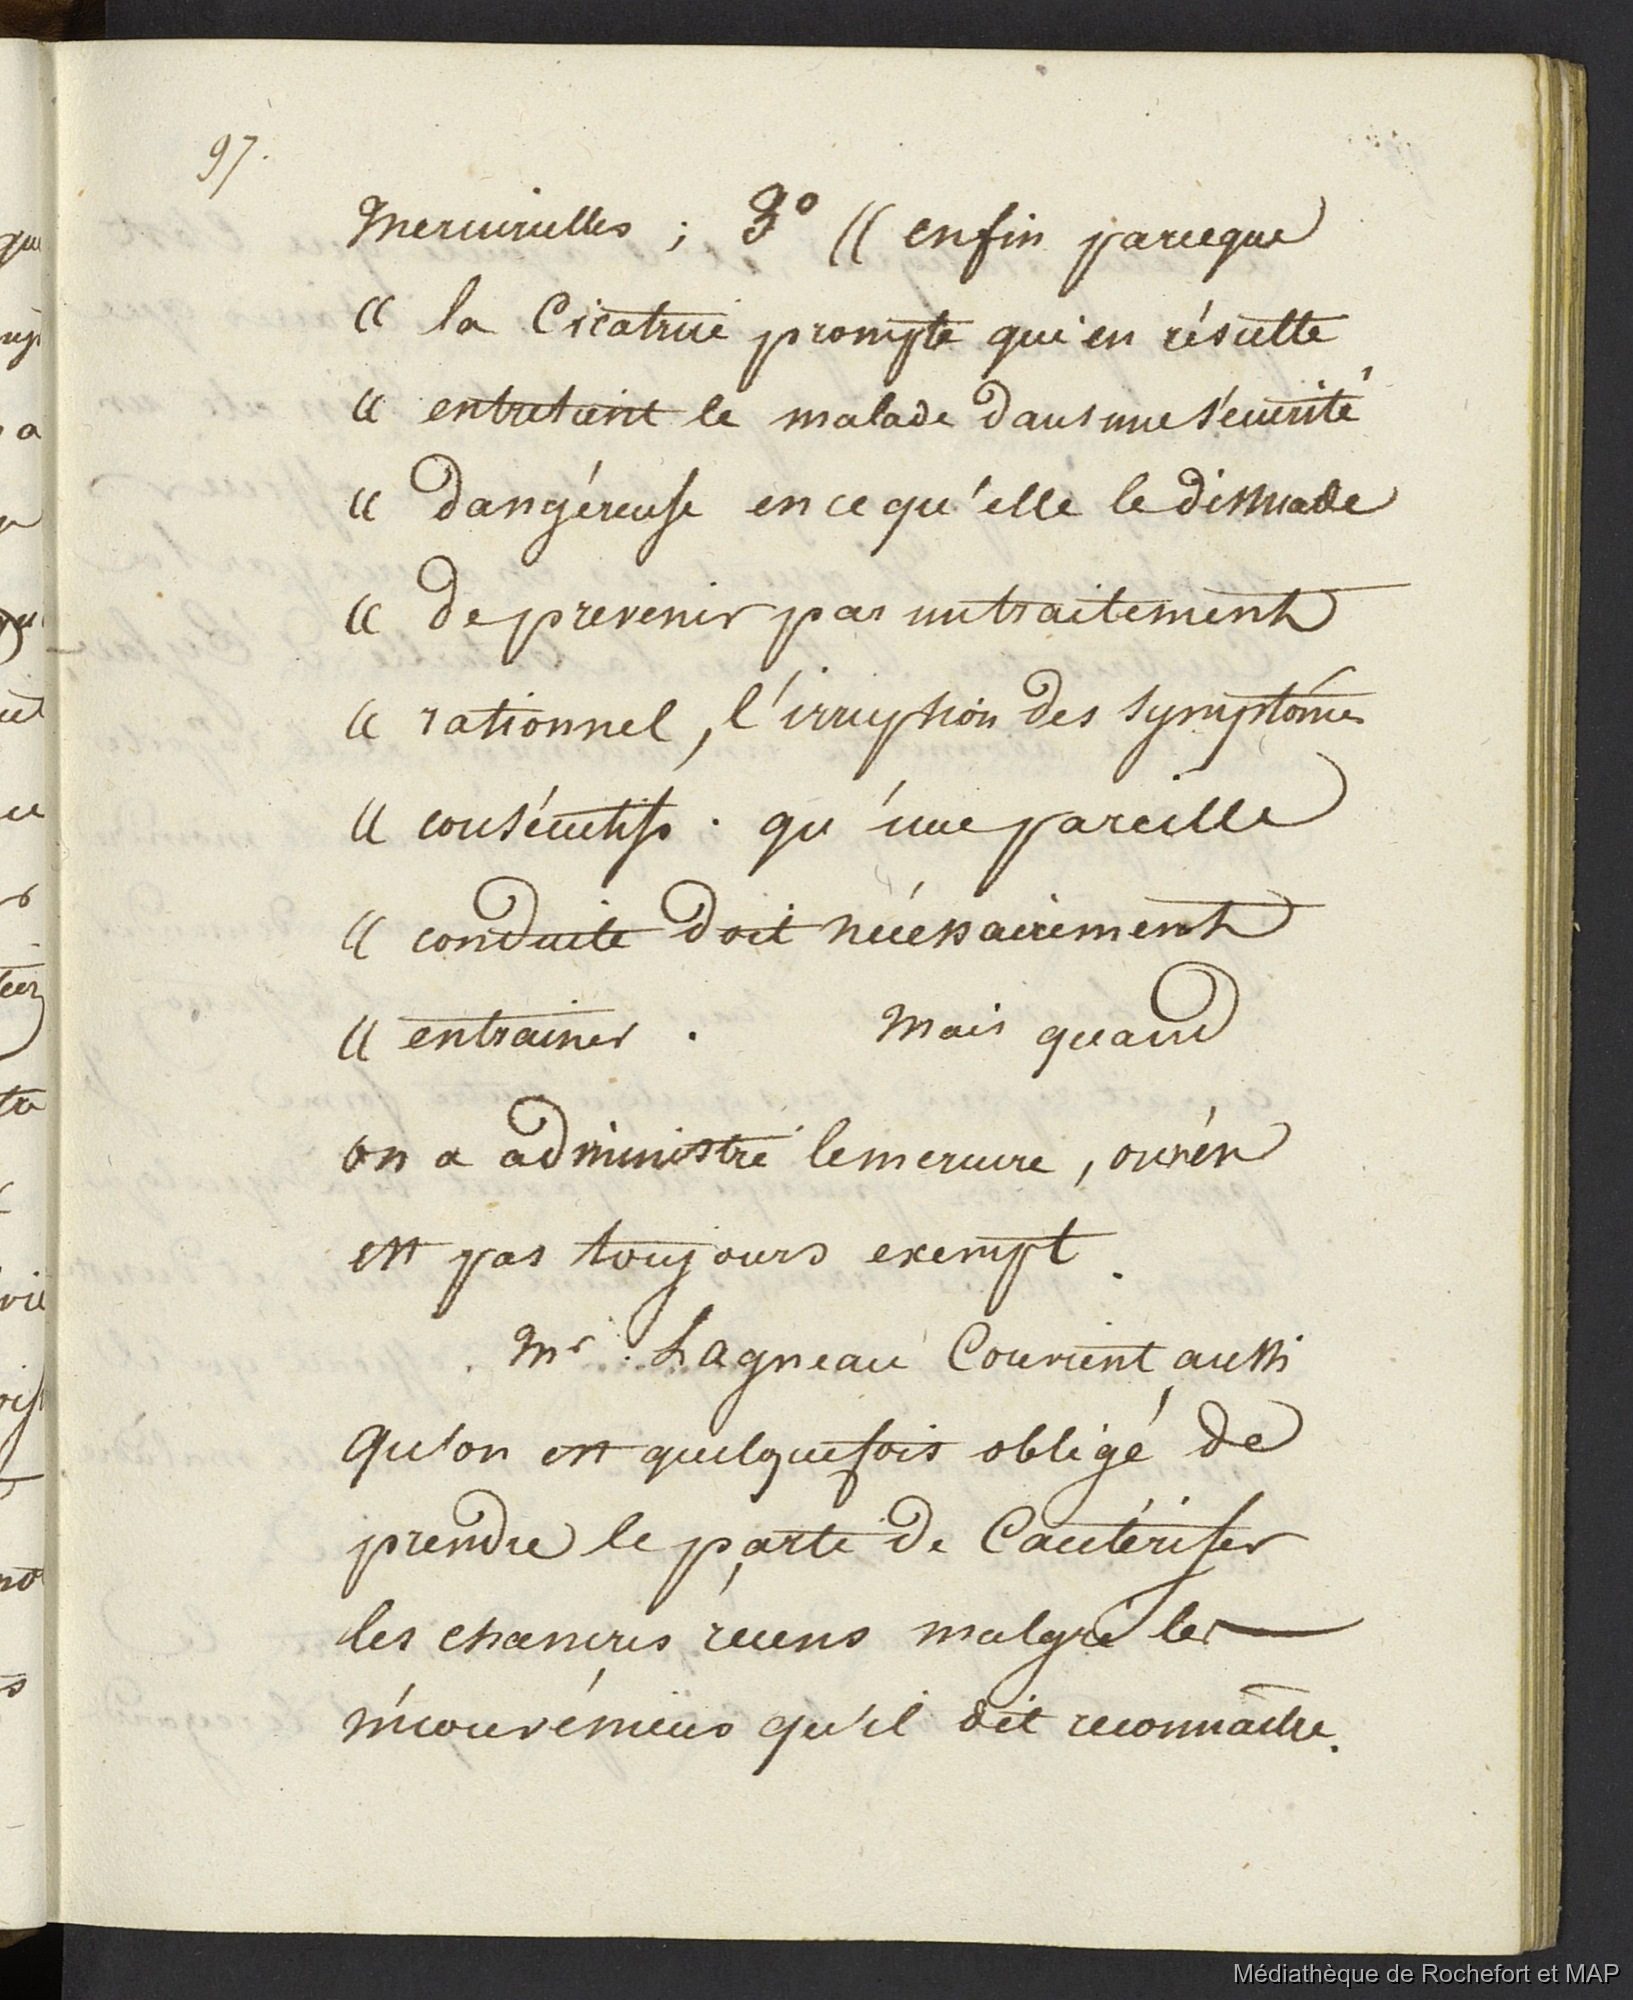 97.
mercurielles ; 3° (( enfin parceque
(( la Cicatrice prompte qui en résulte
(( entretient le malade dans une sécurité
(( dangéreuse en ce qu'elle le dissuade
(( de prevenir par un traitement
(( rationnel, l'irruption des symptômes
(( consécutifs . qu'une pareille
(( conduite doit nécessairement
(( entrainer . Mais quand
on a administré le mercure, on n'en
est pas toujours exempt .
Mr . Lagneau Convient aussi
qu'on est quelquefois obligé de
prendre le parti de Cautériser
les chancres récens malgré les
inconvéniens qu'il dit reconnaître.
Médiathèque de Rochefort et MAP